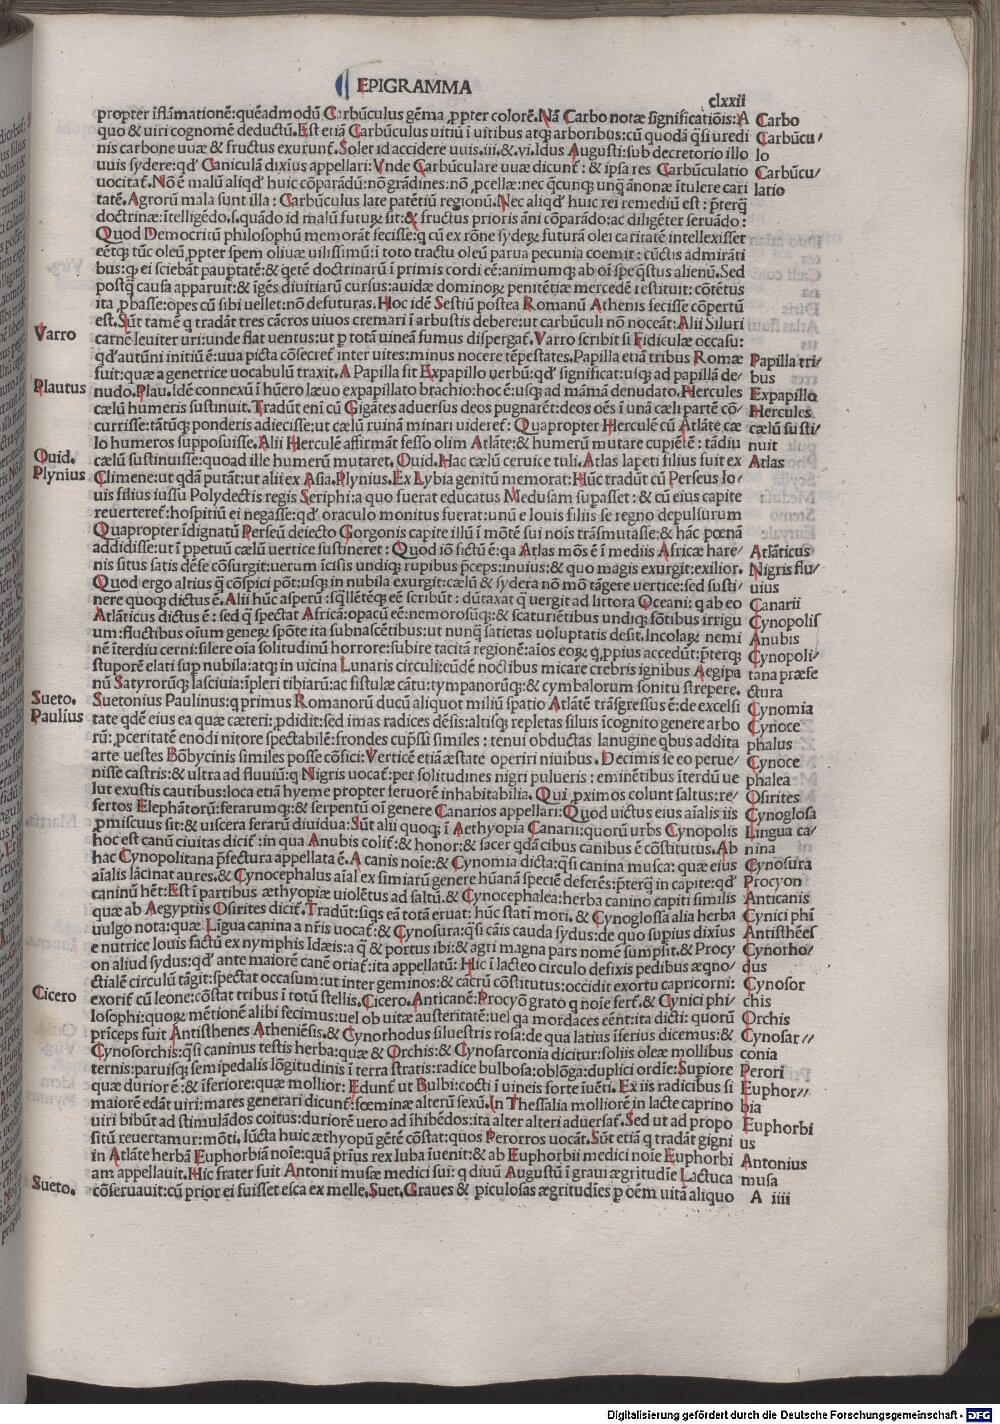 EPIGRAMMA
clxxii
propter īflāmationē: quēadmodū Carbūculus gēma ꝓpter colorē. Nā Carbo notæ significatiōis: A
quo & uiri cognomē deductū. Est etiā Carbūculus uitiū ī uitibus atq; arboribus: cū quodā q̄si uredi
nis carbone uuæ & fructus exurunt. Solet id accidere uuis. iii. & .vi. Idus Augusti: sub decretorio illo
uuis sydere: qď Caniculā diximus appellari: Vnde Carbūculare uuæ dicunt : & ipsa res Carbūculatio
uocitat. Nō ē malū aliqď huic cōparādū: nō grādines: nō ꝓcellæ: nec q̄cunq; unq̄ ānonæ ītulere cari
tatē. Agrorū mala sunt illa : Carbūculus late patētiū regionū. Nec aliqď huic rei remediū est : p̄terq̄
doctrinæ: ītelligēdo. s. quādo id malū futuꝝ sit: & fructus prioris āni cōparādo: ac diligēter seruādo:
Quod Democritū philosophū memorāt fecisse: q cū ex rōne syderꝝ futurā olei caritatē intellexisset
eētq; tūc oleū ꝓpter spem oliuæ uilissimū: ī toto tractu oleū parua pecunia coemit : cūctis admirāti
bus: q; ei sciebāt paupertatē: & q̄etē doctrinarū ī primis cordi eē: animumq; ab oī spe q̄stus alienū. Sed
postq̄ causa apparuit: & īgēs diuitiarū cursus: auidæ dominoꝝ penitētiæ mercedē restituit: cōtētus
ita ꝓbasse: opes cū sibi uellet: nō defuturas. Hoc idē Sestiū postea Romanū Athenis fecisse cōpertū
est. Sūt tamē q tradāt tres cācros uiuos cremari ī arbustis debere: ut carbūculi nō noceāt: Alii Siluri
carnē leuiter uri: unde flat uentus: ut p totā uineā fumus dispergat. Varro scribit si Fidiculæ occasu:
qď autūni initiū ē: uua picta cōsecret inter uites: minus nocere tēpestates. Papilla etiā tribus Romæ
fuit: quæ a genetrice uocabulū traxit. A Papilla fit Expapillo uerbū: qď significat: usq; ad papillā de/
nudo. Plau. Idē connexū ī hūero læuo expapillato brachio: hoc ē: usq; ad māmā denudato. Hercules
cælū humeris sustinuit. Tradūt eni cū Gigātes aduersus deos pugnarēt: deos oēs ī unā cæli partē cō/
currisse: tātūq; ponderis adiecisse: ut cælū ruinā minari uideret: Quapropter Herculē cū Atlāte cæ
lo humeros supposuisse. Alii Herculē affirmāt fesso olim Atlāte: & humerū mutare cupiētē : tādiu
cælū sustinuisse: quoad ille humerū mutaret. Ouid. Hac cælū ceruice tuli. Atlas Iapeti filius fuit ex
Climene: ut qdā putāt: ut alii ex Asia. Plynius. Ex Lybia genitū memorat: Hūc tradūt cū Perseus Io/
uis filius iussū Polydectis regis Seriphi: a quo fuerat educatus Medusam supasset : & cū eius capite
reuerteret: hospitiū ei negasse: qď oraculo monitus fuerat: unū e Iouis filiis se regno depulsurum
Quapropter īdignatū Perseū deiecto Gorgonis capite illū ī mōtē sui nois trāsmutasse: & hāc pœnā
addidisse: ut ī ppetuū cælū uertice sustineret : Quod iō fictū ē: qa Atlas mōs ē ī mediis Africæ hare/
nis situs satis dēse cōsurgit: uerum īcissis undiq; rupibus p̄ceps: inuius: & quo magis exurgit: exilior.
Quod ergo altius q̄ cōspici pōt: usq; in nubila exurgit: cælū & sydera nō mō tāgere uertice: sed susti/
nere quoq; dictus ē. Alii hūc asperū : sq̄llētēq; eē scribūt : dūtaxat q̄ uergit ad littora Oceani: q ab eo
Atlāticus dictus ē : sed q̄ spectat Africā: opacū eē: nemorosūq;: & scaturiētibus undiq; fōtibus irrigu
um: fluctibus oīum generꝝ spōte ita subnascētibus: ut nunq̄ satietas uoluptatis desit. Incolarꝝ nemi
nē īterdiu cerni: silere oīa solitudinū horrore: subire tacitā regionē: aīos eoꝝ q ꝓpius accedūt: p̄terq;
stuporē elati sup nubila: atq; in uicina Lunaris circuli: eūdē noctibus micare crebris ignibus Aegipa
nū Satyrorūq; lasciuia: īpleri tibiarū: ac fistulæ cātu: tympanorūq;: & cymbalorum sonitu strepere.
Suetonius Paulinus: q primus Romanorū ducū aliquot miliū spatio Atlātē trāsgressus ē: de excelsi
tate qdē eius ea quæ cæteri: ꝓdidit: sed imas radices dēsis: altisq; repletas siluis īcognito genere arbo
rū: ꝓceritatē enodi nitore spectabilē: frondes cup̄ssi similes : tenui obductas lanugine qbus addita
arte uestes Bōbycinis similes posse cōfici: Verticē etiā æstate operiri niuibus. Decimis se eo perue/
nisse castris: & ultra ad fluuiū: q Nigris uocat: per solitudines nigri pulueris : eminētibus īterdū ue
lut exustis cautibus: loca etiā hyeme propter feruorē inhabitabilia. Qui ꝓximos colunt saltus: re/
fertos Elephātorū: ferarumq;: & serpentū oī genere Canarios appellari: Quod uictus eius aīalis iis
ꝓmiscuus sit: & uiscera ferarū diuidua: Sūt alii quoq; ī Aethyopia Canarii: quorū urbs Cynopolis
hoc est canū ciuitas dicit : in qua Anubis colit: & honor: & sacer qdā cibus canibus ē cōstitutus. Ab
hac Cynopolitana p̄fectura appellata ē. A canis noīe: & Cynomia dicta: q̄si canina musca: quæ eius
aīalis lācinat aures. & Cynocephalus aīal ex simiarū genere hūanā speciē deferēs: p̄terq̄ in capite: qď
caninū hēt: Est ī partibus æthyopiæ uiolētus ad saltū. & Cynocephalea: herba canino capiti similis
quæ ab Aegyptiis Osirites dicit. Tradūt: siqs eā totā eruat: hūc stati mori. & Cynoglossa alia herba
uulgo nota: quæ Līgua canina a nr̄is uocat: & Cynosura: q̄si cāis cauda sydus: de quo supius dixius
e nutrice Iouis factū ex nymphis Idæis: a q̄ & portus ibi: & agri magna pars nomē sumpsit. & Procy
on aliud sydus: qď ante maiorē canē oriat: ita appellatū: Hic ī lacteo circulo defixis pedibus æqno/
ctialē circulū tāgit: spectat occasum: ut inter geminos: & cācrū cōstitutus: occidit exortu capricorni:
exorit cū leone: cōstat tribus ī totū stellis. Cicero. Anticanē: Procyō grato q noīe fert. & Cynici phi/
losophi: quorꝝ mētionē alibi fecimus: uel ob uitæ austeritatē: uel qa mordaces eēnt: ita dicti: quorū
princeps fuit Antisthenes Atheniēsis. & Cynorhodus siluestris rosa: de qua latius īferius dicemus: &
Cynosorchis: q̄si caninus testis herba: quæ & Orchis: & Cynosarconia dicitur: foliis oleæ mollibus
ternis: paruisq; semipedalis lōgitudinis ī terra stratis: radice bulbosa: oblōga: duplici ordie: Supiore
quæ durior ē: & īferiore: quæ mollior: Edunt ut Bulbi: cocti ī uineis forte īuēti. Ex iis radicibus si
maiorē edāt uiri: mares generari dicunt: fœminæ alterū sexū. In Thessalia molliorē in lacte caprino
uiri bibūt ad stimulādos coitus: duriorē uero ad īhibēdos: ita alter alteri aduersat. Sed ut ad propo
sitū reuertamur: mōti. Iūcta huic æthyopū gētē cōstat: quos Perorros uocāt. Sūt etiā q tradāt gigni
in Atlāte herbā Euphorbiā noīe: quā prius rex Iuba īuenit: & ab Euphorbii medici noīe Euphorbi
am appellauit. Hic frater fuit Antonii musæ medici sui: q diuū Augustū ī graui ægritudīe Lactuca
cōseruauit: cū prior ei fuisset esca ex melle. Suet. Graues & piculosas ægritudīes p oēm uitā aliquo
Varro
Plautus
Ouid.
Plynius
Sueto.
Paulius
Cicero
Sueto.
Carbo
Carbūcu/
lo
Carbūcu/
latio
Papilla tri/
bus
Expapillo
Hercules
cælū susti/
nuit
Atlas
Atlāticus
Nigris flu/
uius
Canarii
Cynopolis
Anubis
Cynopoli/
tana præfe
ctura
Cynomia
Cynoce
phalus
Cynoce
phalea
Osirites
Cynoglosa
Lingua ca/
nina
Cynosura
Procyon
Anticanis
Cynici phi
Antisthēes
Cynorho/
dus
Cynosor
chis
Orchis
Cynosar//
conia
Perori
Euphor//
bia
Euphorbi
us
Antonius
musa
A iiii
Digitalisierung gefördert durch die Deutsche Forschungsgemeinschaft - DFG